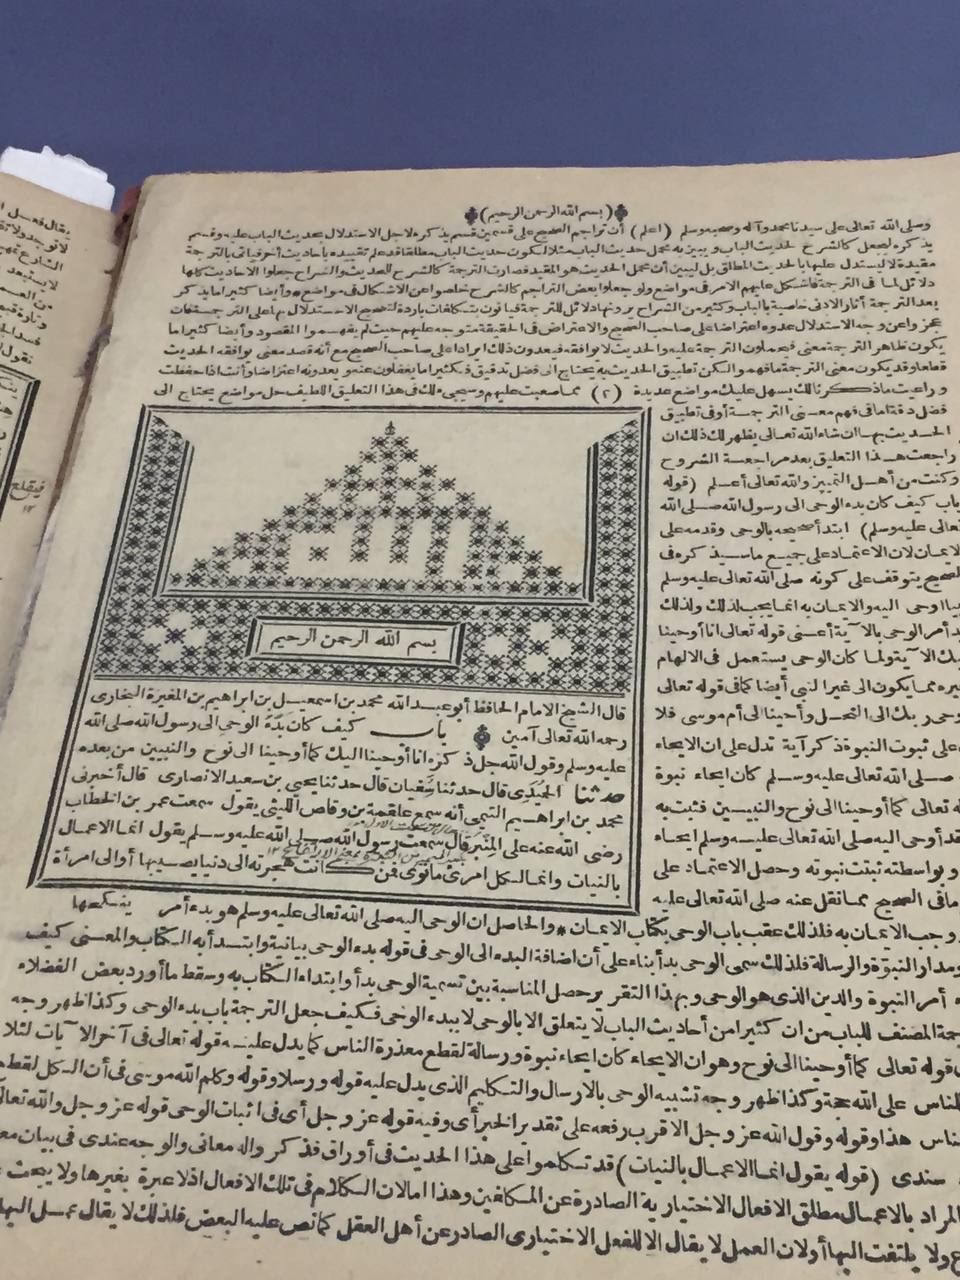 (بسم الله الرحمن الرحيم)
وصلى الله تعالى على سيدنا محمد وآله وصحبه وسلم (اعلم) أن تراجم الصحيح على قسمين قسم يذكره لاجل الاستدلال بحديث الباب عليه وقسم
يذكره ليجعل كالشرح لحديث الباب ويبين به مجمل حديث الباب مثلا لكون حديث الباب مطلقا قد علم تقييده بأحاديث أخر فيأتي بالترجمة
مقيدة لا ليستدل عليها بالحديث المطلق بل ليبين أن مجمل الحديث هو المقيد فصارت الترجمة كالشرح للحديث والشراح جعلوا الاحاديث كلها
دلائل لما في الترجمة فاشكل عليهم الامر في مواضع ولو جعلوا بعض التراجم كالشرح خلصوا عن الاشكال في مواضع * وأيضا كثيرا ما يذكر
بعد الترجمة آثار الادنى خاصية بالباب وكثير من الشراح يرونها دلائل للترجمة فيأتون بتكلفات باردة لتصحيح الاستدلال بها على الترجمة فان
عجزوا عن وجه الاستدلال عدوه اعتراضا على صاحب الصحيح والاعتراض في الحقيقة متوجه عليهم حيث لم يفهموا المقصود وأيضا كثيرا ما
يكون ظاهر الترجمة معنى فيحملون الترجمة عليه والحديث لا يوافقه فيعدون ذلك ايرادا على صاحب الصحيح مع أنه قصد معنى يوافقه الحديث
قطعا وقد يكون معنى الترجمة ما فهموا لكن تطبيق الحديث به يحتاج الى فضل تدقيق فكثيرا ما يغفلون عنه ويعدونه اعتراضا وأنت اذا حفظت
وراعيت ما ذكرنا لك يسهل عليك مواضع عديدة (٢) مما صعبت عليهم وسيجيء لك في هذا التعليق اللطيف حل مواضع يحتاج الى
فضل دقة اما في فهم معنى الترجمة أو في تطبيق
الحديث بها ان شاء الله تعالى يظهر لك ذلك ان
راجعت هذا التعليق بعد مراجعة الشروح
وكنت من أهل التمييز والله تعالى أعلم (قوله
باب كيف كان بدء الوحى الى رسول الله صلى الله
تعالى عليه وسلم) ابتدأ صحيحه بالوحى وقدمه على
الايمان لان الاعتماد على جميع ما سيذكره في
الصحيح يتوقف على كونه صلى الله تعالى عليه وسلم
اوحى اليه والايمان به انما يجب لذلك ولذلك
أمر الوحى بالآية أعنى قوله تعالى انا أوحينا
الآية ولما كان الوحى يستعمل في الالهام
مما يكون الى غير النبي أيضا كما في قوله تعالى
ربك الى النحل وأوحينا الى أم موسى فلا
على ثبوت النبوة ذكر آية تدل على ان الايحاء
صلى الله تعالى عليه وسلم كان ايحاء نبوة
تعالى كما أوحينا الى نوح والنبيين فثبت به
قد أوحى اليه صلى الله تعالى عليه وسلم ايحاء
وبواسطته ثبتت نبوته وحصل الاعتماد على
ما في الصحيح مما نقل عنه صلى الله تعالى عليه
بسم الله الرحمن الرحيم
قال الشيخ الامام الحافظ أبو عبد الله محمد بن اسمعيل بن ابراهيم بن المغيرة البخارى
رحمه الله تعالى آمين باب كيف كان بدء الوحى الى رسول الله صلى الله
عليه وسلم وقول الله جل ذكره انا أوحينا اليك كما أوحينا الى نوح والنبيين من بعده
حدثنا الحميدى قال حدثنا سفيان قال حدثنا يحيى بن سعيد الانصارى قال أخبرنى
محمد بن ابراهيم التيمى أنه سمع علقمة بن وقاص الليثى يقول سمعت عمر بن الخطاب
رضى الله عنه على المنبر قال سمعت رسول الله صلى الله عليه وسلم يقول انما الاعمال
بالنيات وانما لكل امرئ ما نوى فمن كانت هجرته الى دنيا يصيبها أو الى امرأة
ينكحها
وجب الايمان به فلذلك عقب باب الوحى بكتاب الايمان * والحاصل ان الوحى اليه صلى الله تعالى عليه وسلم هو بدء أمر
ومدار النبوة والرسالة فلذلك سمى الوحى بدأ بناء على أن اضافة البدء الى الوحى في قوله بدء الوحى بيانية وابتدأ به الكتاب والمعنى كيف
أمر النبوة والدين الذى هو الوحى وبهذا التقرير حصل المناسبة بين تسمية الوحى بدأ وابتداء الكتاب به وسقط ما أورد بعض الفضلاء
المصنف للباب من ان كثيرا من أحاديث الباب لا يتعلق الا بالوحى لا ببدء الوحى فكيف جعل الترجمة باب بدء الوحى وكذا ظهر وجه
قوله تعالى كما أوحينا الى نوح وهو ان الايحاء كان ايحاء نبوة ورسالة لقطع معذرة الناس كما يدل عليه قوله تعالى في آخر الآيات لئلا
للناس على الله حجة وكذا ظهر وجه تشبيه الوحى بالارسال والتكليم الذى يدل عليه قوله ورسلا وقوله وكلم الله موسى في أن الكل لقطع
هذا وقوله وقول الله عز وجل الاقرب رفعه على تقدير الخبر أى وفيه قوله عز وجل أى في اثبات الوحى قوله عز وجل والله تعالى
سندى (قوله يقول انما الاعمال بالنيات) قد تكلموا على هذا الحديث في أوراق فذكروا له معانى والوجه عندى في بيان
المراد بالاعمال مطلق الافعال الاختيارية الصادرة عن المكلفين وهذا اما لان الكلام في تلك الافعال اذ لا عبرة بغيرها ولا يبحث
ولا يلتفت اليها أو لان العمل لا يقال الا للفعل الاختيارى الصادر عن أهل العقل كما نص عليه البعض فلذلك لا يقال عمل